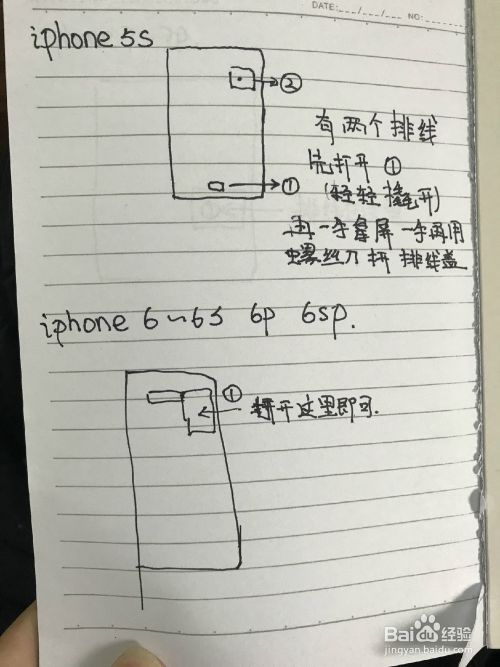 DATE: __/__/__ NO:
iphone 5s
②
有两个排线
先打开 ①
①
(轻轻撬开)
再一手拿屏 一手再用
螺丝刀 拼 排线盖
iphone 6～6s 6p 6sp.
①
打开这里即可.
Baidu经验
jingyan.baidu.com